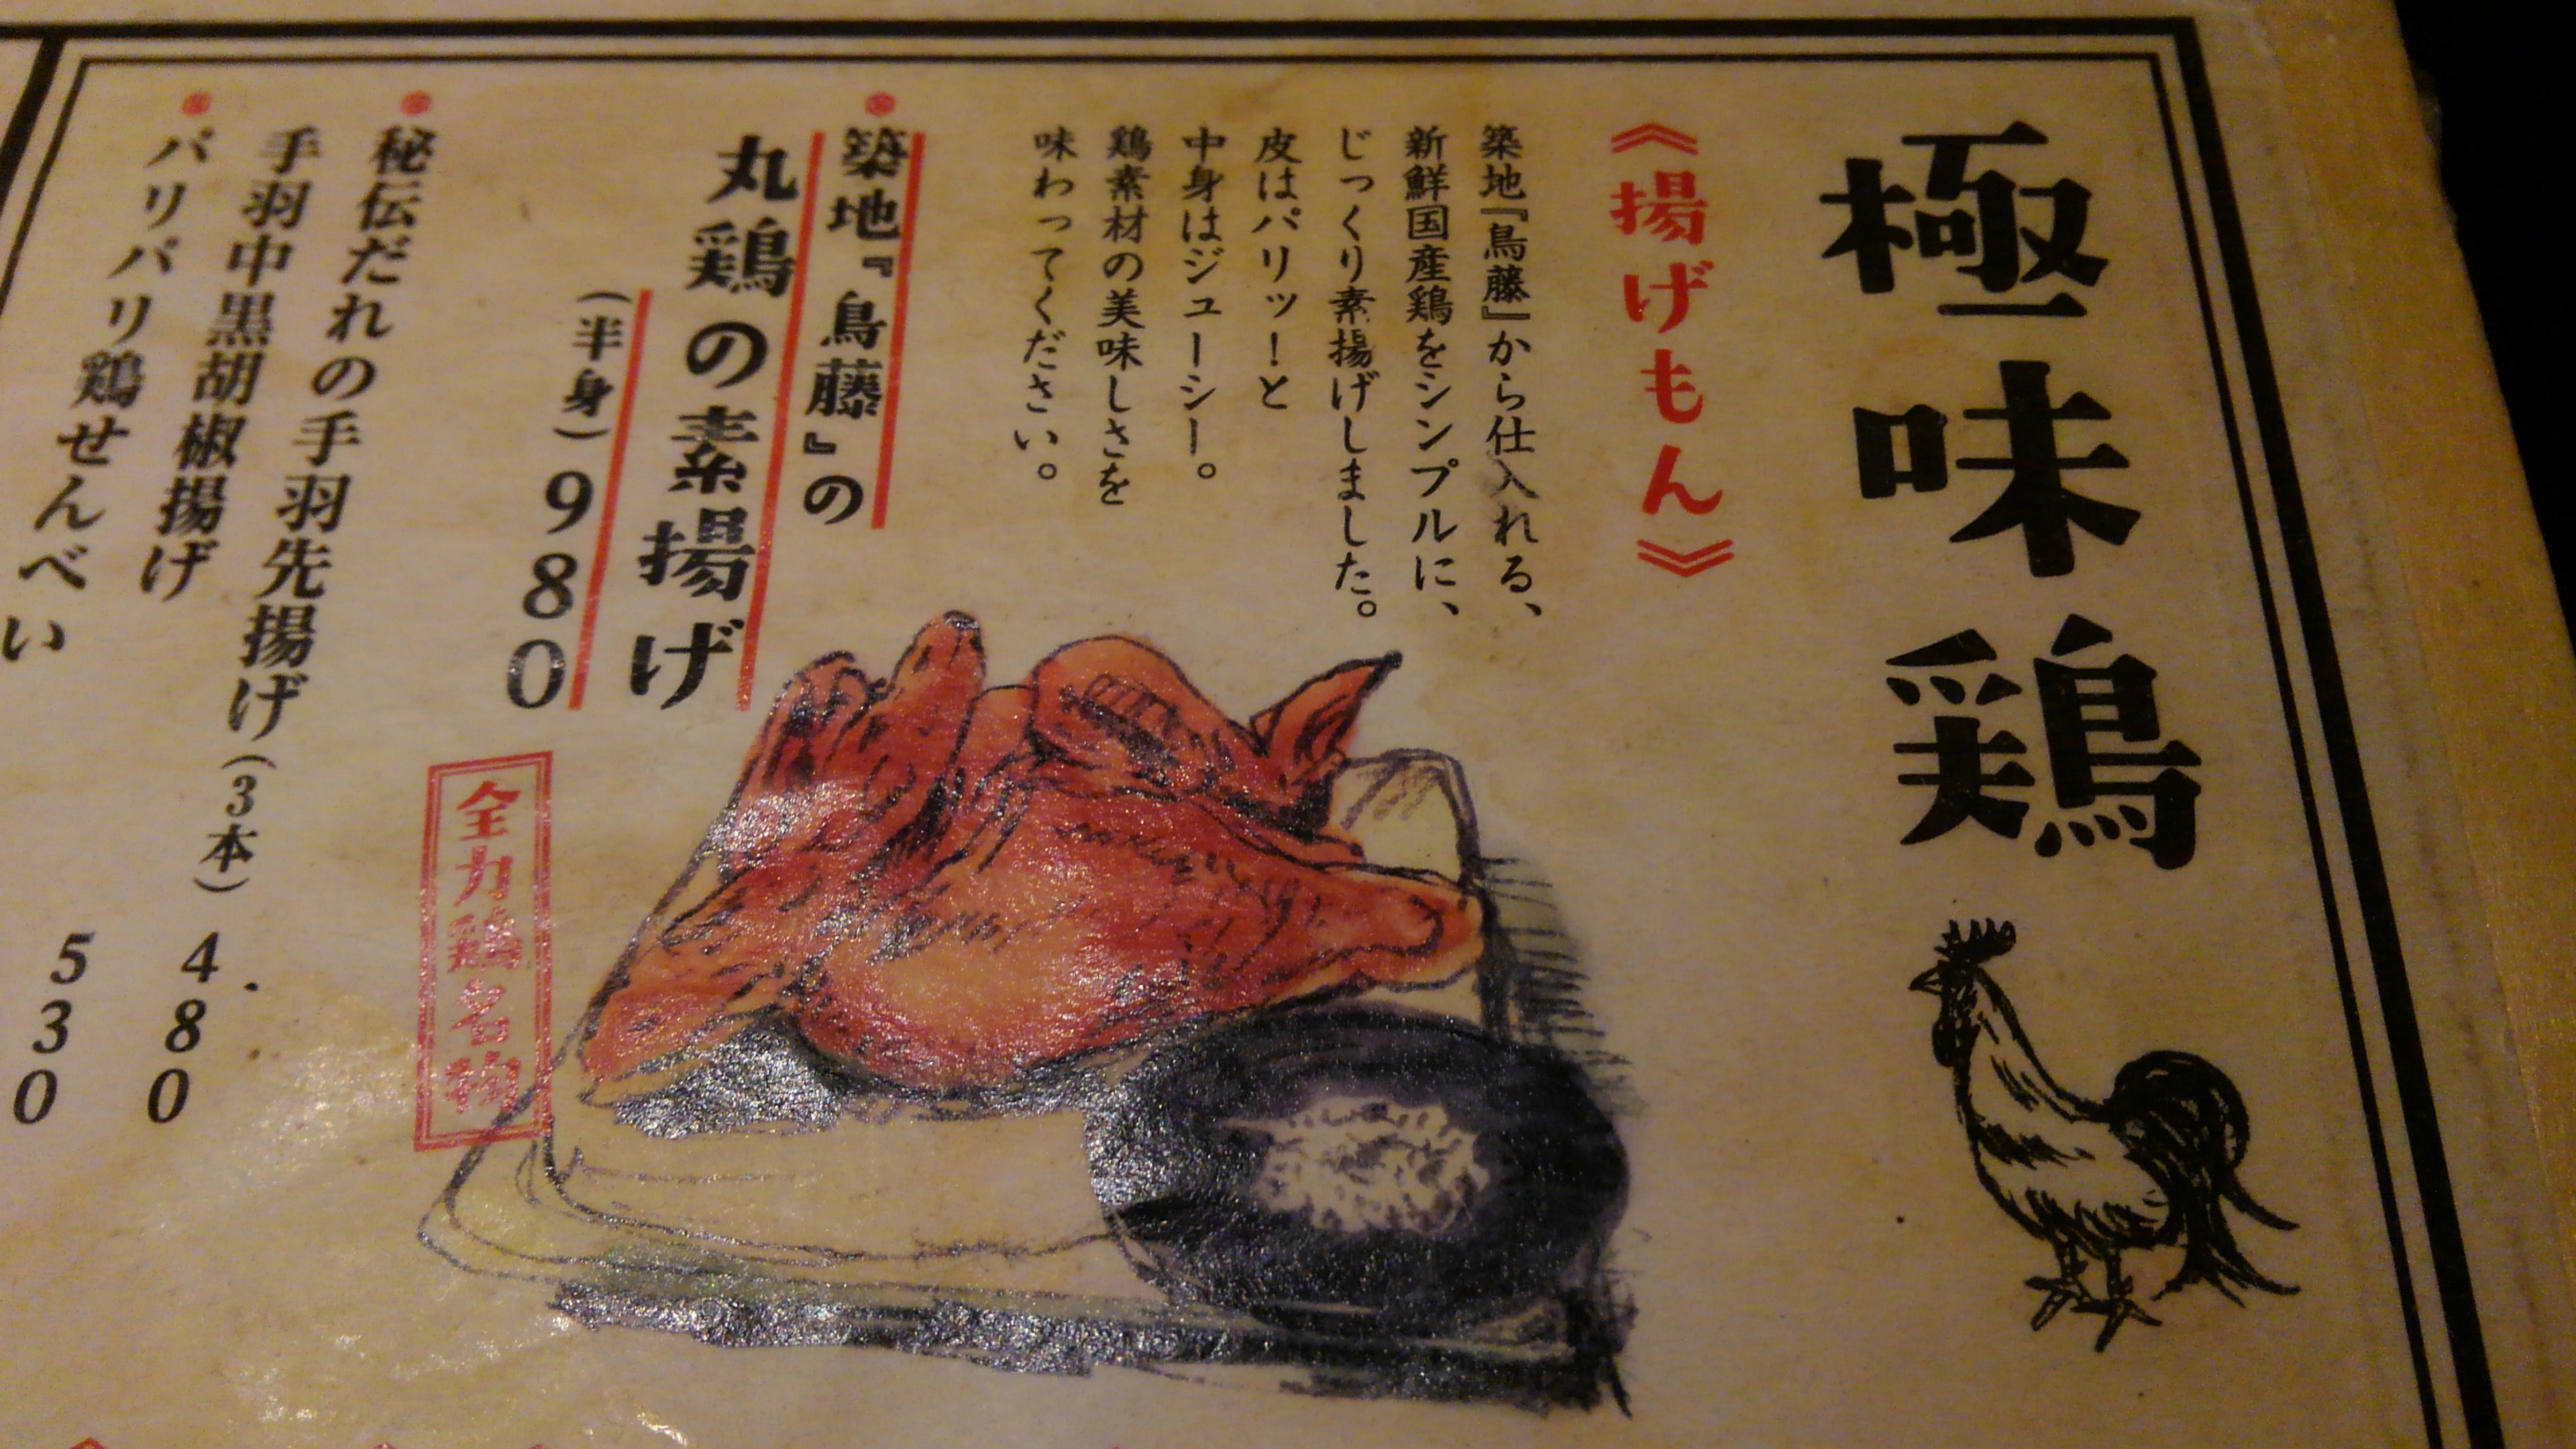 極味鶏
《揚げもん》
築地『鳥藤』から仕入れる、
新鮮国産鶏をシンプルに、
じっくり素揚げしました。
皮はパリッ!と
中身はジューシー。
鶏素材の美味しさを
味わってください。
築地『鳥藤』の
丸鶏の素揚げ
(半身)980
全力鶏名物
秘伝だれの手羽先揚げ(3本)
手羽中黒胡椒揚げ 480
パリパリ鶏せんべい 530